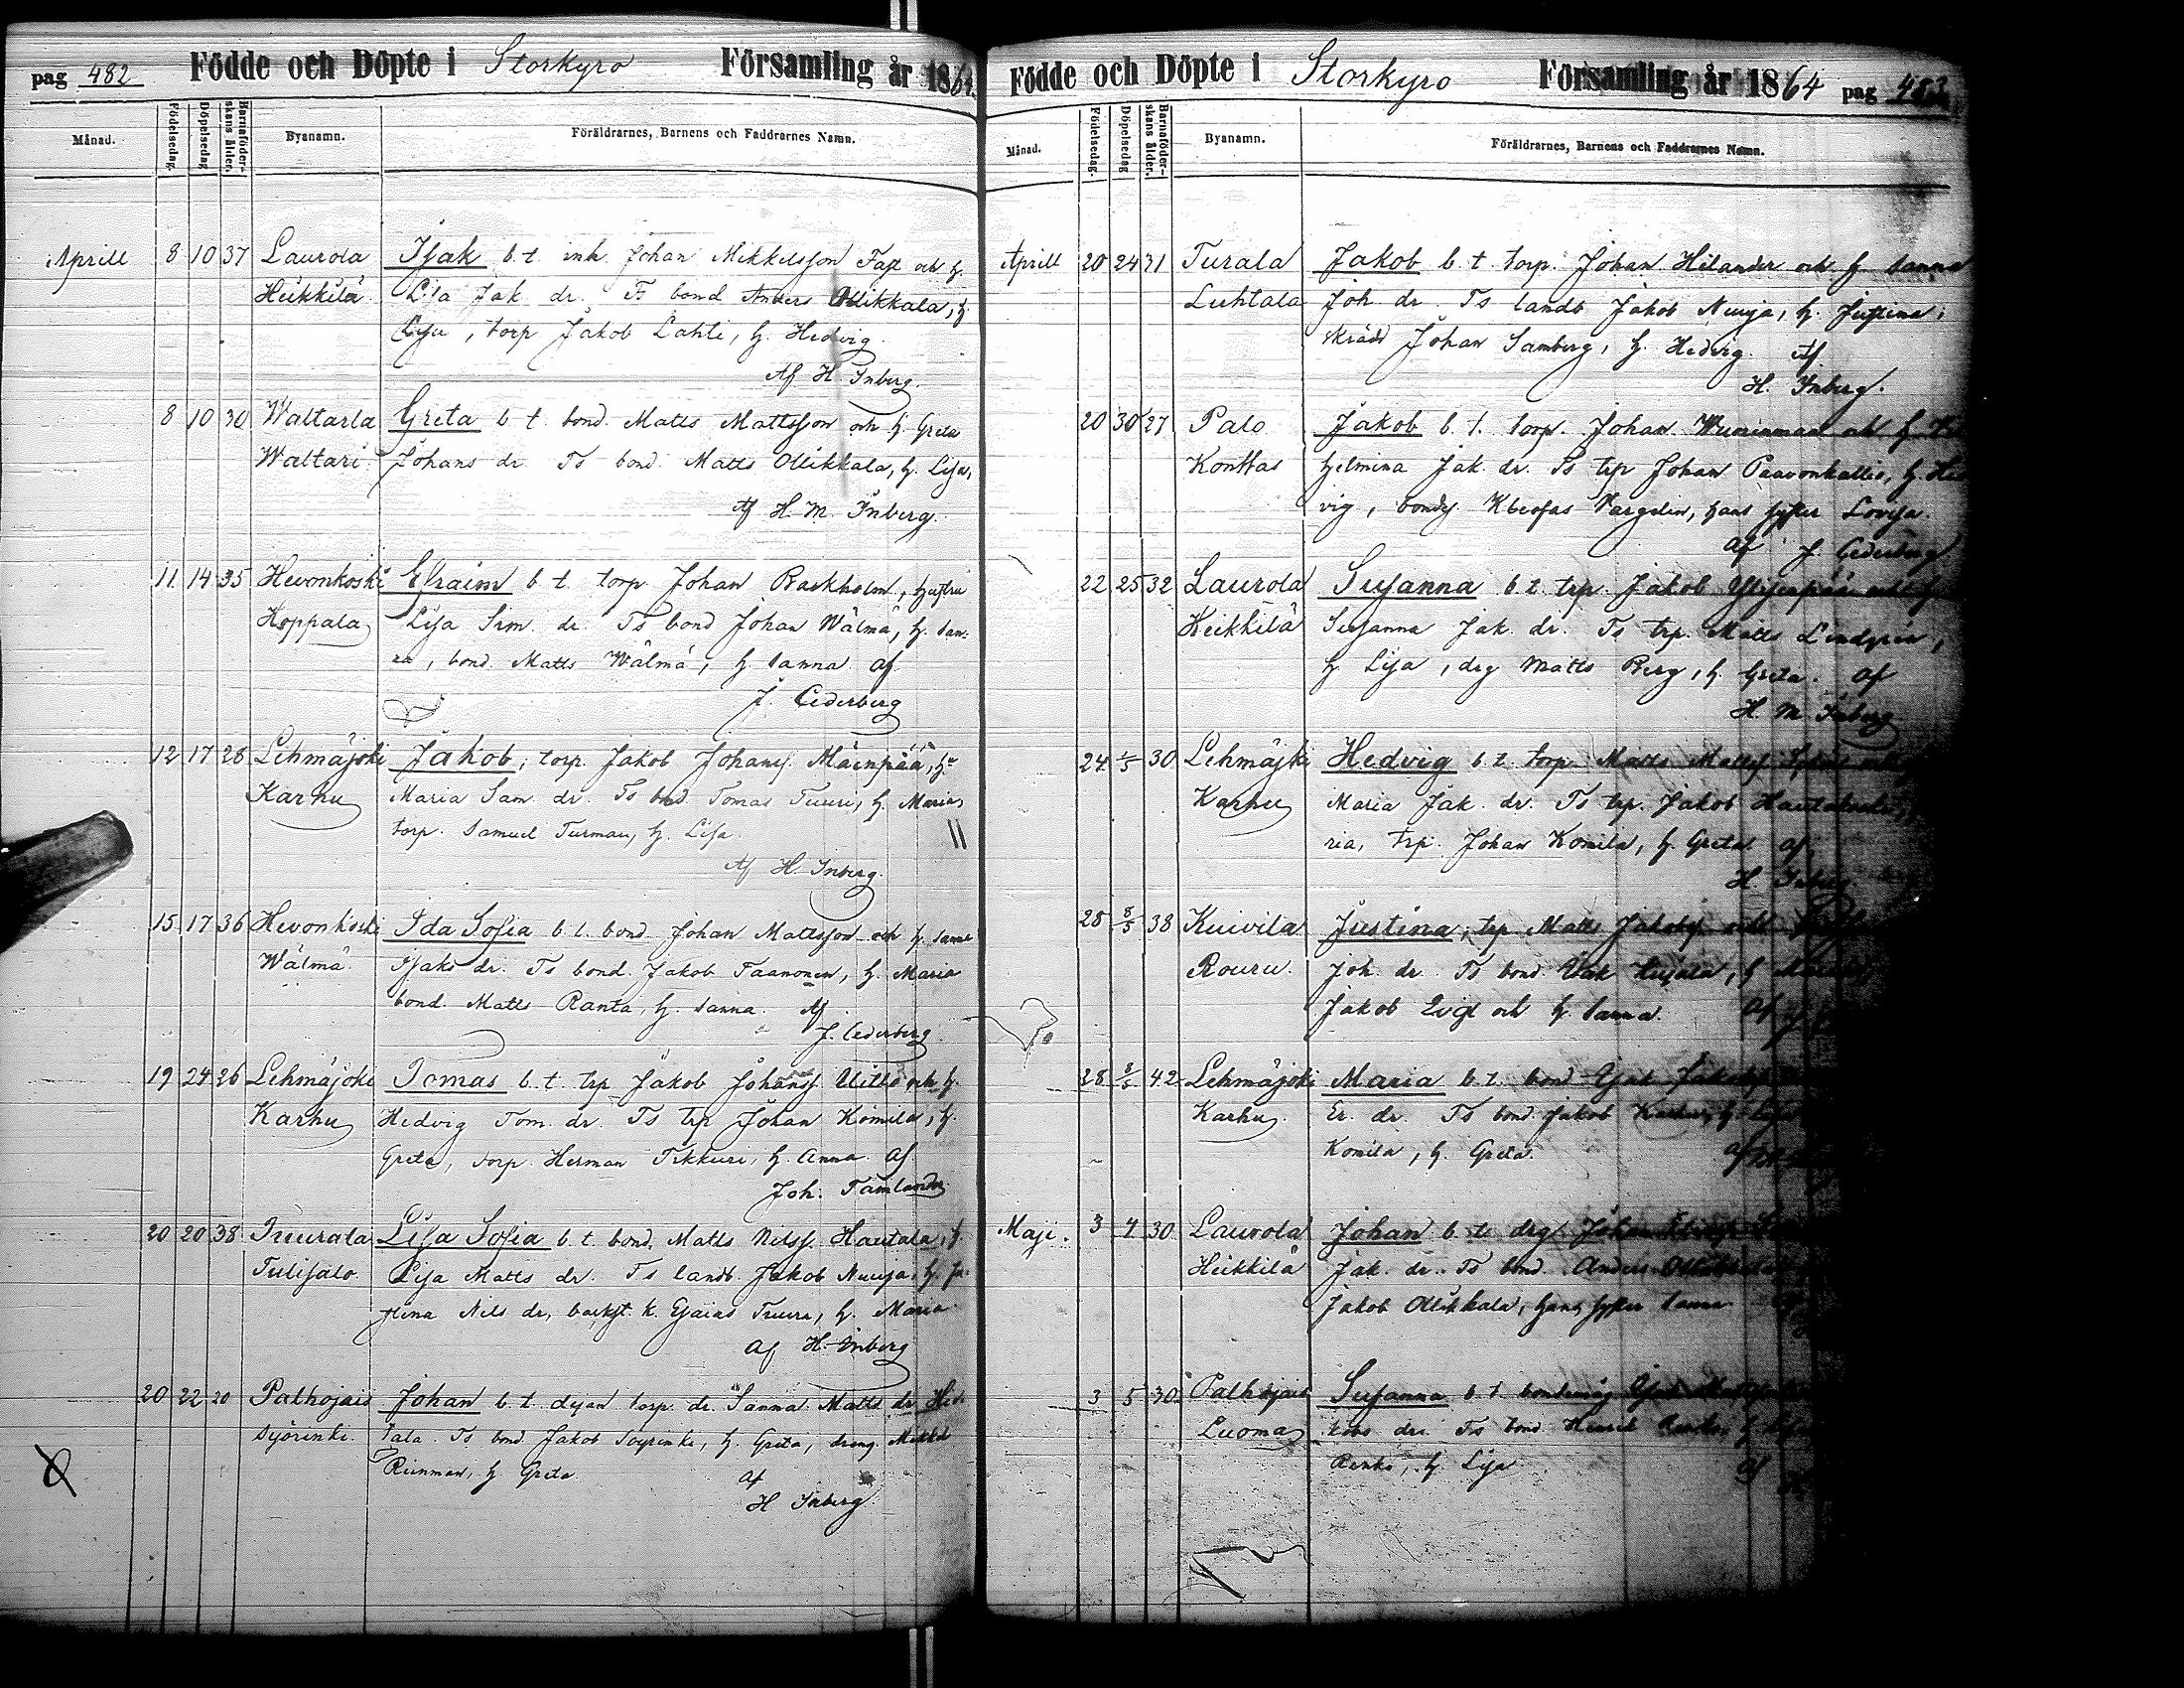 pag 482 Födde och Döpte i Storkyro Församling år 1864.
Månad. Födelsedag. Döpelsedag Barnaföderskans ålder. Byanamn. Föräldrarnes, Barnens och Faddrarnes Namn.
Aprill 8 10 37 Laurola Isak b.t. inh Johan Mikkelsson Fast och h.
Heikkilä Lisa Jak. dr. Ts bond Anders Ollikkala, h.
Lisa, torp Jakob Lahti, h. Hedvig.
Af H Inberg.
8 10 30 Waltarla Greta b t. bond. Matts Mattsson och h Greta
Waltari Johans dr Ts bond. Matts Ollikkala, h. Lisa,
Af H. M. Inberg.
11 14 35 Hevonkoski Efraim b t. torp. Johan Backholm, hustru
Hoppala Lisa Sim. dr. Ts bond Johan Wälmä, h. San-
na, bond. Matts Wälmä, h Sanna af
J. Cederberg
12 17 28 Lehmäjoki Jakob, torp. Jakob Johans. Mäenpää, h.
Karhu Maria Sam. dr. Ts bnd. Tomas Tuuri, h. Maria,
torp. Samuel Turman, h. Lisa.
Af H. Inberg.
15 17 36 Hevonkoski Ida Sofia b t. bond Johan Mattsson och h. Sanna
Wälmä Isaks dr. Ts bond. Jakob Taanonen, h. Maria
bond. Matts Ranta, h. Sanna. Af
J. Cederberg
19 24 26 Lehmäjoki Tomas b.t. trp Jakob Johanss. Uitto och h.
Karhu Hedvig Tom. dr. Ts trp Johan Komila, h.
Greta, torp. Herman Tikkuri, h. Anna. af
Joh. Tamlander
20 20 38 Truurala Lisa Sofia b t. bond. Matts Nilss. Hautala, h.
Tulisalo Lisa Matts dr. Ts landb. Jakob Nuuja, h. Ju-
stina Nils dr, backst. k. Esaias Truuri, h. Maria
af H. Inberg
20 22 20 Palhojais Johan b t. dejan torp. dr. Sanna Matts dr
Syörinki. tala. Ts bond Jakob Soyrinki, h. Greta, dreng.
Reinman, h Greta
af
H Inberg.
Födde och Döpte i Storkyro Församling år 1864 pag 483
Månad. Födelsedag. Döpelsedag Barnaföderskans ålder. Byanamn. Föräldrarnes, Barnens och Faddrarnes Namn.
Aprill 20 24 31 Turala Jakob b.t. torp. Johan Hilander och h Sanna
Luhtala Joh dr. Ts landb Jakob Nuuja, h. Justina,
skrädd Johan Samberg, h Hedvig. Af
H. Inberg.
20 30 27 Palo Jakob b.t. torp. Johan Wuorinman och h
Konttas helmina Jak. dr. Ts trp Johan Paavonkallio, h. Hed
vig, bonds. Kleofas Vargelin, hans syster Lovisa.
af J. Cederberg
22 25 32 Laurola Susanna b t. trp. Jakob och h
Heikkilä Susanna Jak. dr. Ts trp. Matts Lindgrén,
h Lisa, drg Matts Berg, h. Greta. af
H. M Inberg
24 1/5 30 Lehmäjki Hedvig b t. torp Matts Matts
Karhu Maria Jak. dr. Ts trp. Jakob
ria, trp. Johan Komila, h. Greta af
H. Inberg
28 8/5 38 Kuivila Justina, trp Matts Jakobs och
Rouru. Joh. dr. Ts bond. Isak Kujala, h
Jakob Qvist och h Sanna. af
28 8/5 42 Lehmäjoki Maria b t. bond Isak
Karhu Er. dr. Ts bond. Jakob Karhu, h
Komila, h. Greta. af
Maji. 3 4 30 Laurola Johan b t. drg. Johan
Heikkilä Jak. dr. Ts bond. Anders
Jakob Ollikkala, hans syster Sanna
3 5 30 Palhojais Susanna b t. bondemåg
Luoma kobs dr. Ts bond Henrik
Renko, h. Lisa af